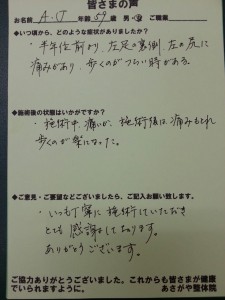 皆さまの声
お名前 A・U 年齢 59歳 男・女 ご職業
◆いつ頃から、どのような症状がありましたか？
・半年位前より、左足の裏側、左の尻に
痛みがあり、歩くのがつらい時がある。
◆施術後の状態はいかがですか？
・施術中、痛いが、施術後は痛みもとれ
歩くのが楽になった。
◆ご意見・ご要望などございましたら、ご記入お願い致します。
・いつも丁寧に施術していただき
とても感謝しております。
ありがとうございます。
ご協力ありがとうございました。これからも皆さまが健康
でいられますように。 あさがや整体院